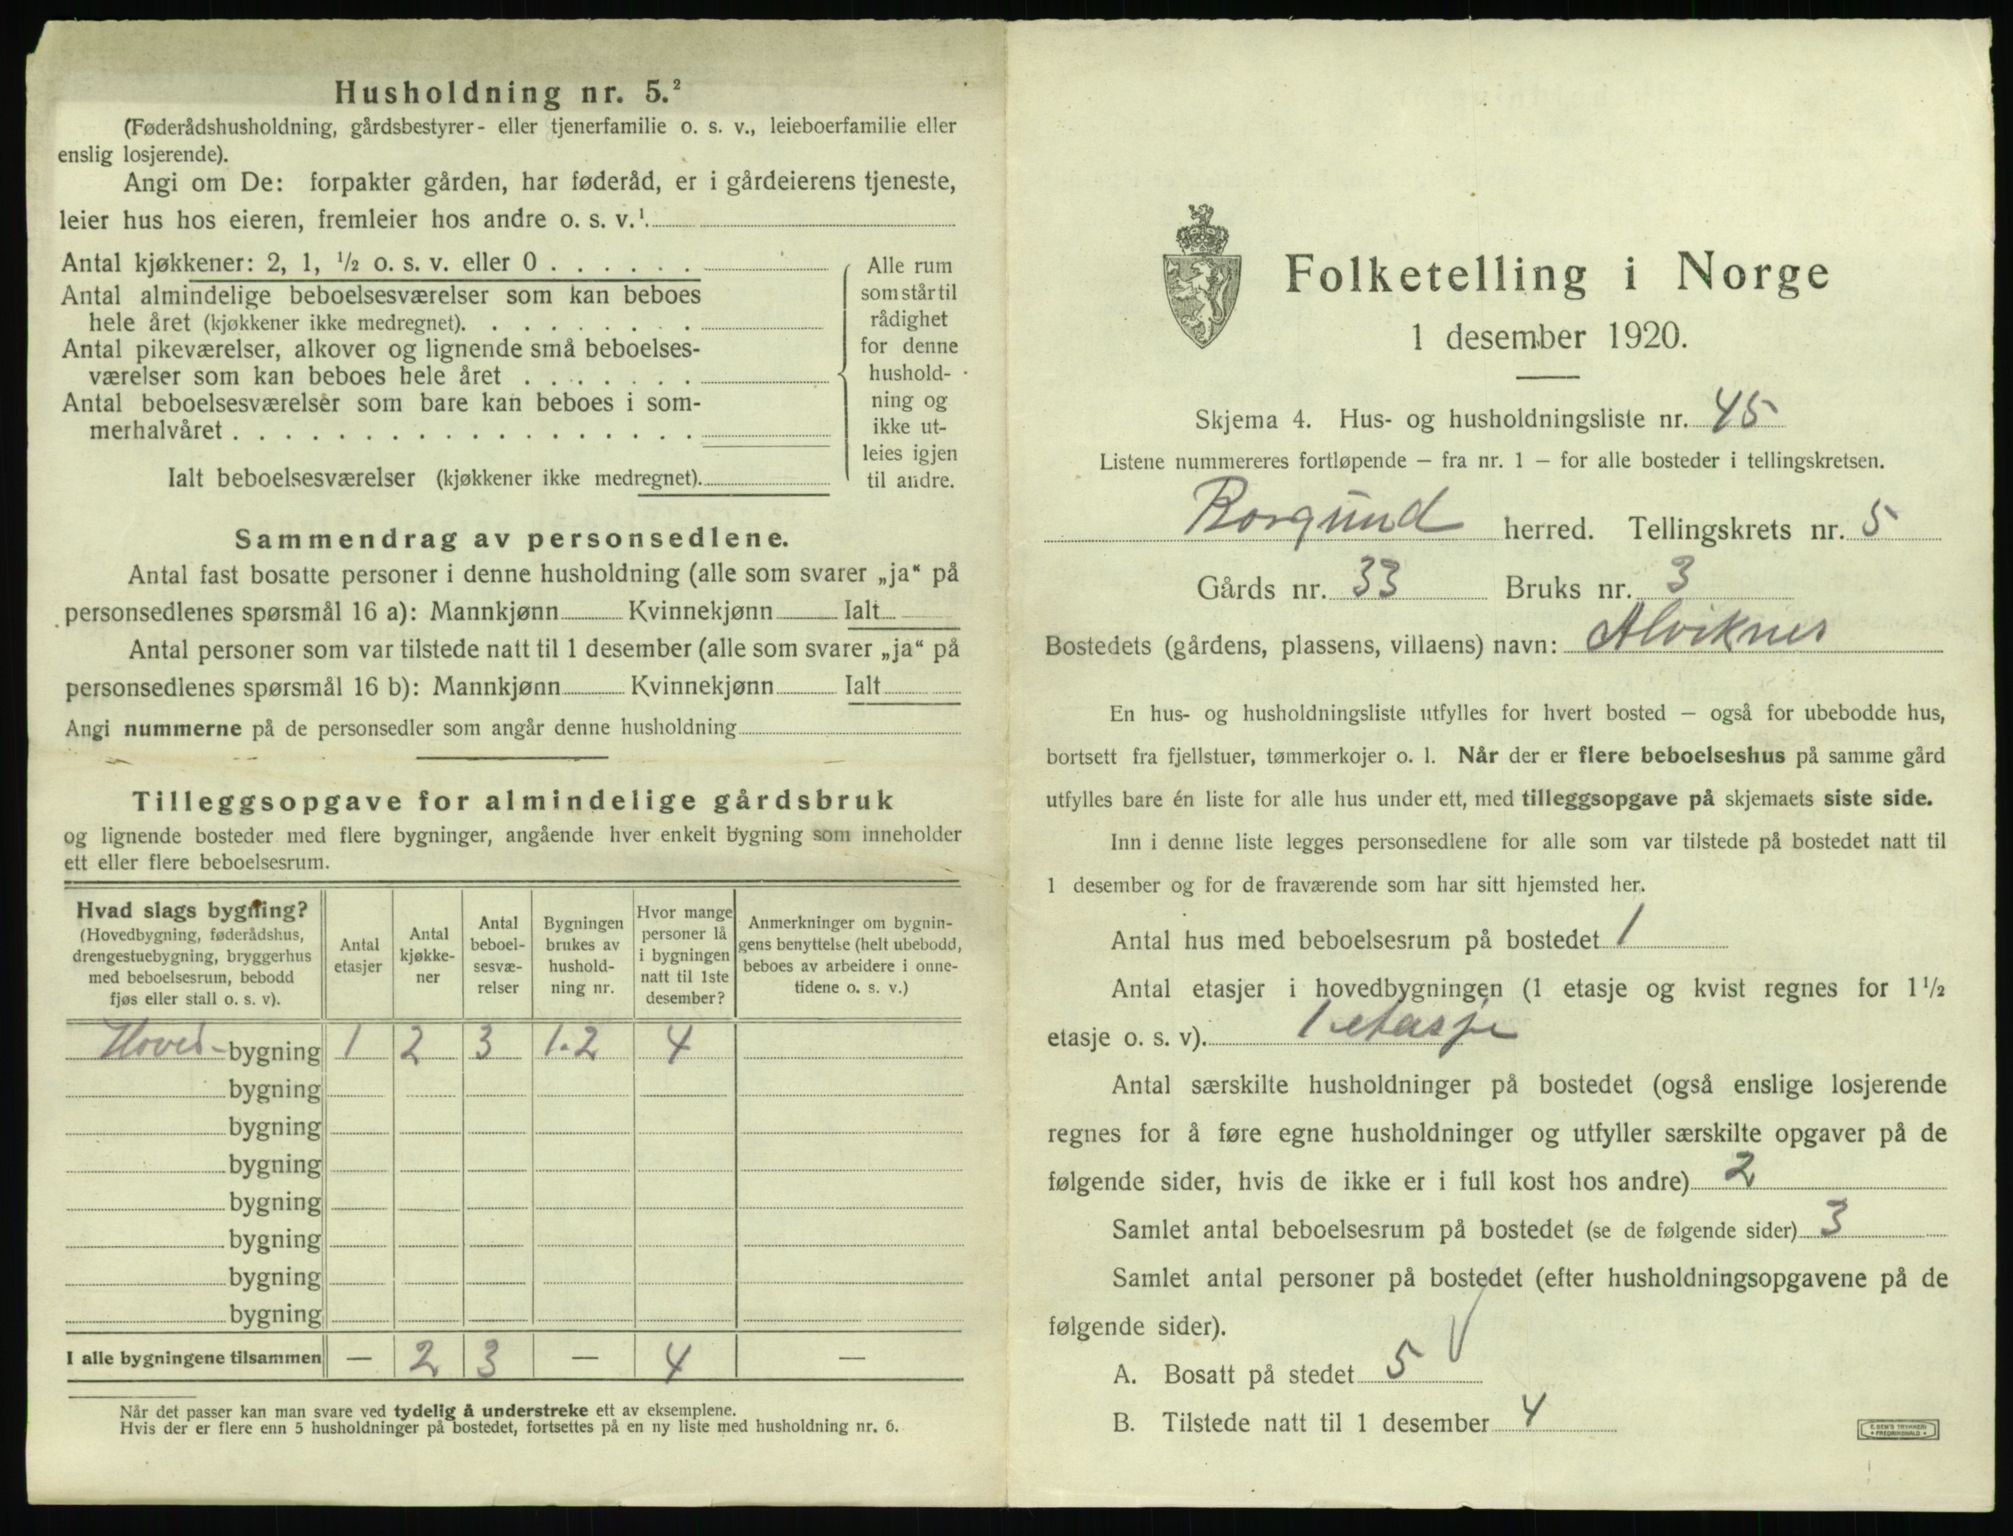 Husholdning nr. 5.²
(Føderådshusholdning, gårdsbestyrer- eller tjenerfamilie o. s. v., leieboerfamilie eller
enslig losjerende).
Angi om De: forpakter gården, har føderåd, er i gårdeierens tjeneste,
leier hus hos eieren, fremleier hos andre o. s. v.¹
Antal kjøkkener: 2, 1, ½ o. s. v. eller 0 . . . . . .
Antal almindelige beboelsesværelser som kan beboes
hele året (kjøkkener ikke medregnet). . . . . . . . .
Antal pikeværelser, alkover og lignende små beboelses-
værelser som kan beboes hele året . . . . . . .
Antal beboelsesværelser som bare kan beboes i som-
merhalvåret . . . . . . . . . . . . . . . . . .
Ialt beboelsesværelser (kjøkkener ikke medregnet).
Alle rum
som står til
rådighet
for denne
hushold-
ning og
ikke ut-
leies igjen
til andre.
Sammendrag av personsedlene.
Antal fast bosatte personer i denne husholdning (alle som svarer „ja“ på
personsedlenes spørsmål 16 a): Mannkjønn Kvinnekjønn Ialt
Antal personer som var tilstede natt til 1 desember (alle som svarer „ja“ på
personsedlenes spørsmål 16 b): Mannkjønn Kvinnekjønn Ialt
Angi nummerne på de personsedler som angår denne husholdning
Tilleggsopgave for almindelige gårdsbruk
og lignende bosteder med flere bygninger, angående hver enkelt bygning som inneholder
ett eller flere beboelsesrum.
Hvad slags bygning?
(Hovedbygning, føderådshus,
drengestuebygning, bryggerhus
med beboelsesrum, bebodd
fjøs eller stall o. s. v).
Antal
etasjer
Antal
kjøkke-
ner
Antal
beboel-
sesvæ-
relser
Bygningen
brukes av
hushold-
ning nr.
Hvor mange
personer lå
i bygningen
natt til 1ste
desember?
Anmerkninger om bygnin-
gens benyttelse (helt ubebodd,
beboes av arbeidere i onne-
tidene o. s. v.)
Hoved-bygning 1 2 3 1.2 4
bygning
bygning
bygning
bygning
bygning
bygning
bygning
I alle bygningene tilsammen — 2 3 — 4 —
Når det passer kan man svare ved tydelig å understreke ett av eksemplene.
Hvis der er flere enn 5 husholdninger på bostedet, fortsettes på en ny liste med husholdning nr. 6.
Folketelling i Norge
1 desember 1920.
Skjema 4. Hus- og husholdningsliste nr. 45
Listene nummereres fortløpende – fra nr. 1 – for alle bosteder i tellingskretsen.
Borgund herred. Tellingskrets nr. 5
Gårds nr. 33 Bruks nr. 3
Bostedets (gårdens, plassens, villaens) navn: Alviknes
En hus- og husholdningsliste utfylles for hvert bosted – også for ubebodde hus,
bortsett fra fjellstuer, tømmerkojer o. l. Når der er flere beboelseshus på samme gård
utfylles bare én liste for alle hus under ett, med tilleggsopgave på skjemaets siste side.
Inn i denne liste legges personsedlene for alle som var tilstede på bostedet natt til
1 desember og for de fraværende som har sitt hjemsted her.
Antal hus med beboelsesrum på bostedet 1
Antal etasjer i hovedbygningen (1 etasje og kvist regnes for 1½
etasje o. s. v). 1 etasje
Antal særskilte husholdninger på bostedet (også enslige losjerende
regnes for å føre egne husholdninger og utfyller særskilte opgaver på de
følgende sider, hvis de ikke er i full kost hos andre) 2
Samlet antal beboelsesrum på bostedet (se de følgende sider) 3
Samlet antal personer på bostedet (efter husholdningsopgavene på de
følgende sider).
A. Bosatt på stedet 5
B. Tilstede natt til 1 desember 4
E. SEM'S TRYKKERI
FREDRIKSHALD